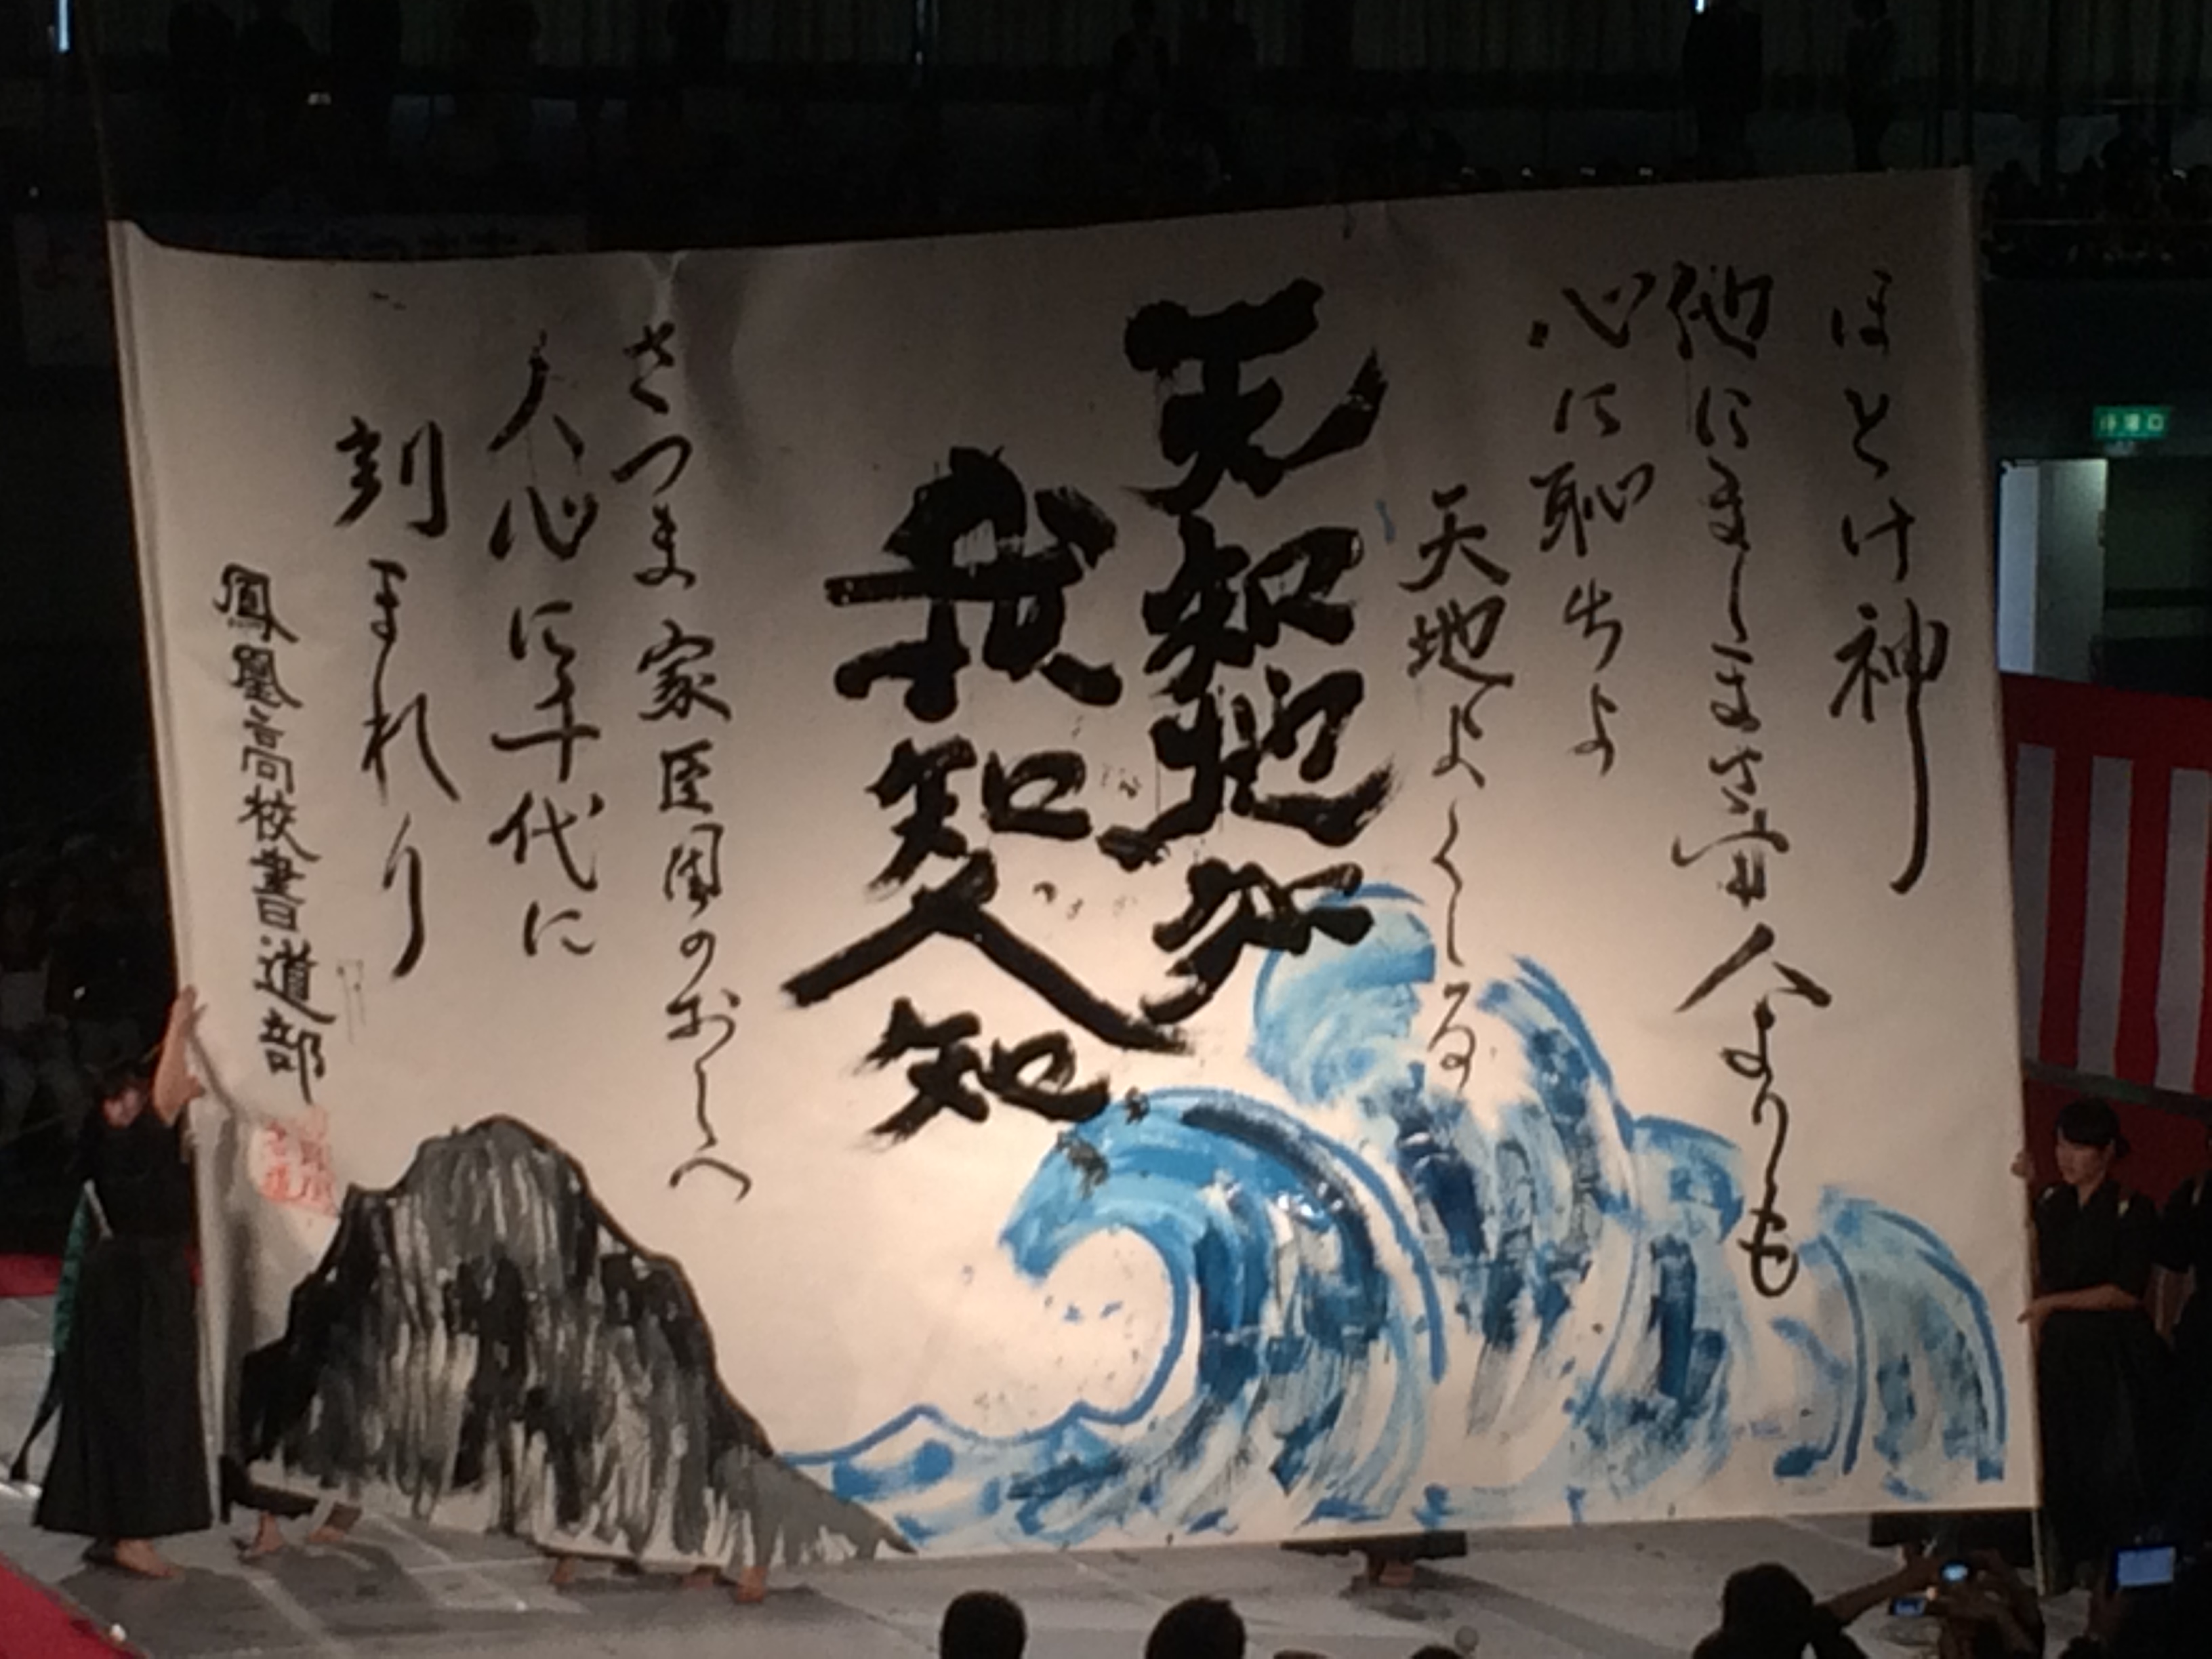 ほとけ神
他にましまさず人よりも
心に恥ちよ
天地よくしる
天知地知
我知人知
さつま家臣団のおしへ
人心に千代に
刻まれり
鳳凰高校書道部